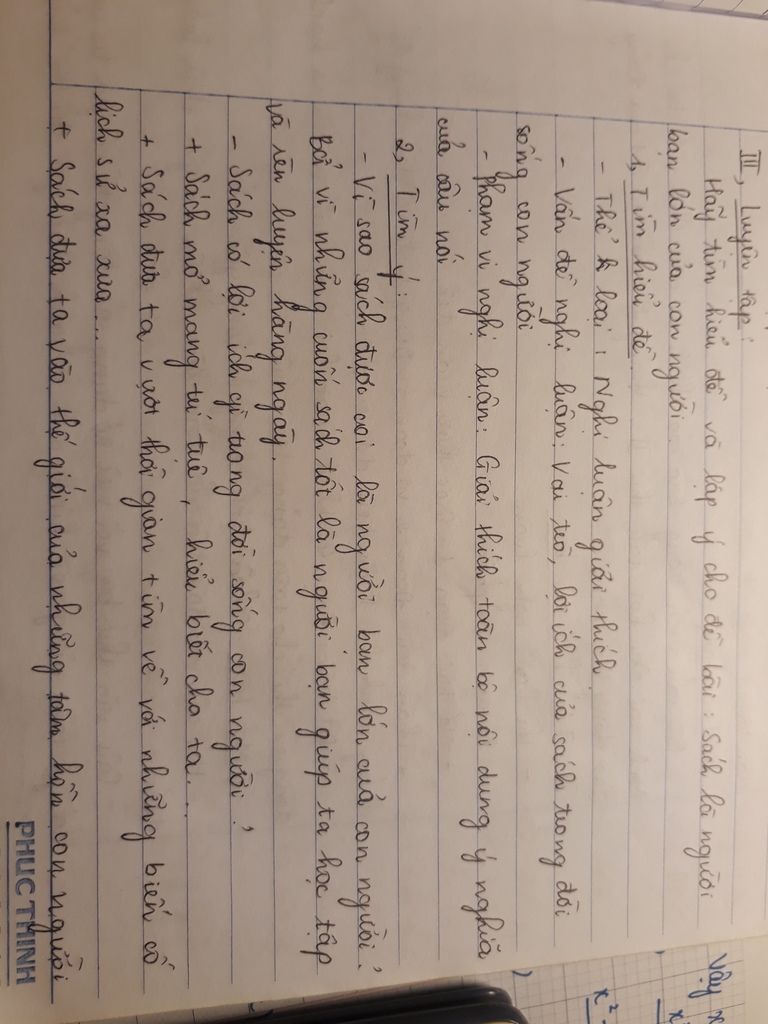 III, Luyện tập:
Hãy tìm hiểu đề và lập ý cho đề bài: Sách là người
bạn lớn của con người.
1, Tìm hiểu đề
- Thể loại: Nghị luận giải thích
- Vấn đề nghị luận: Vai trò, lợi ích của sách trong đời
sống con người
- Phạm vi nghị luận: Giải thích toàn bộ nội dung ý nghĩa
của câu nói
2, Tìm ý:
- Vì sao sách được coi là người bạn lớn của con người?
Bởi vì những cuốn sách tốt là người bạn giúp ta học tập
và rèn luyện hàng ngày.
- Sách có lợi ích gì trong đời sống con người?
+ Sách mở mang trí tuệ, hiểu biết cho ta...
+ Sách đưa ta vượt thời gian tìm về với những biến cố
lịch sử xa xưa...
+ Sách đưa ta vào thế giới của những tâm hồn con người
PHUC THINH
Vậy x
x
x²-